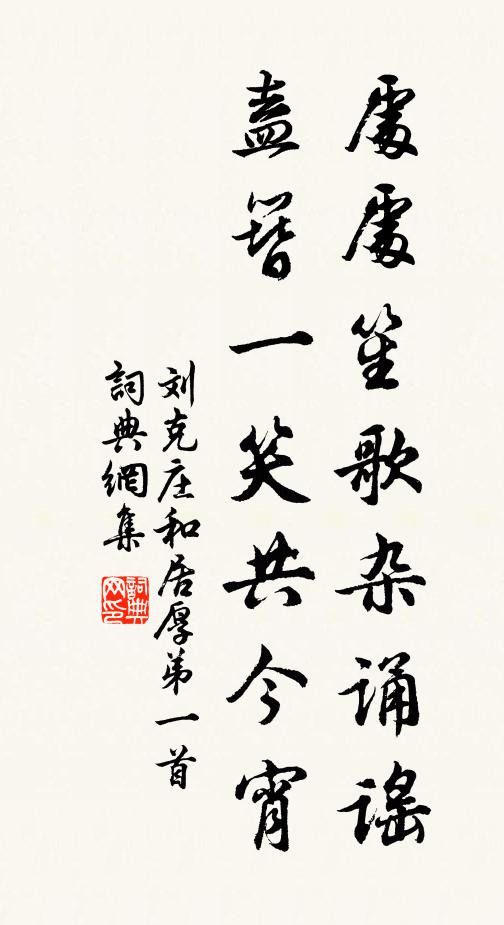 處處笙歌杂诵谣
盍簪一笑共今宵
刘克庄和居厚弟一首
詞典網集
詞典网印